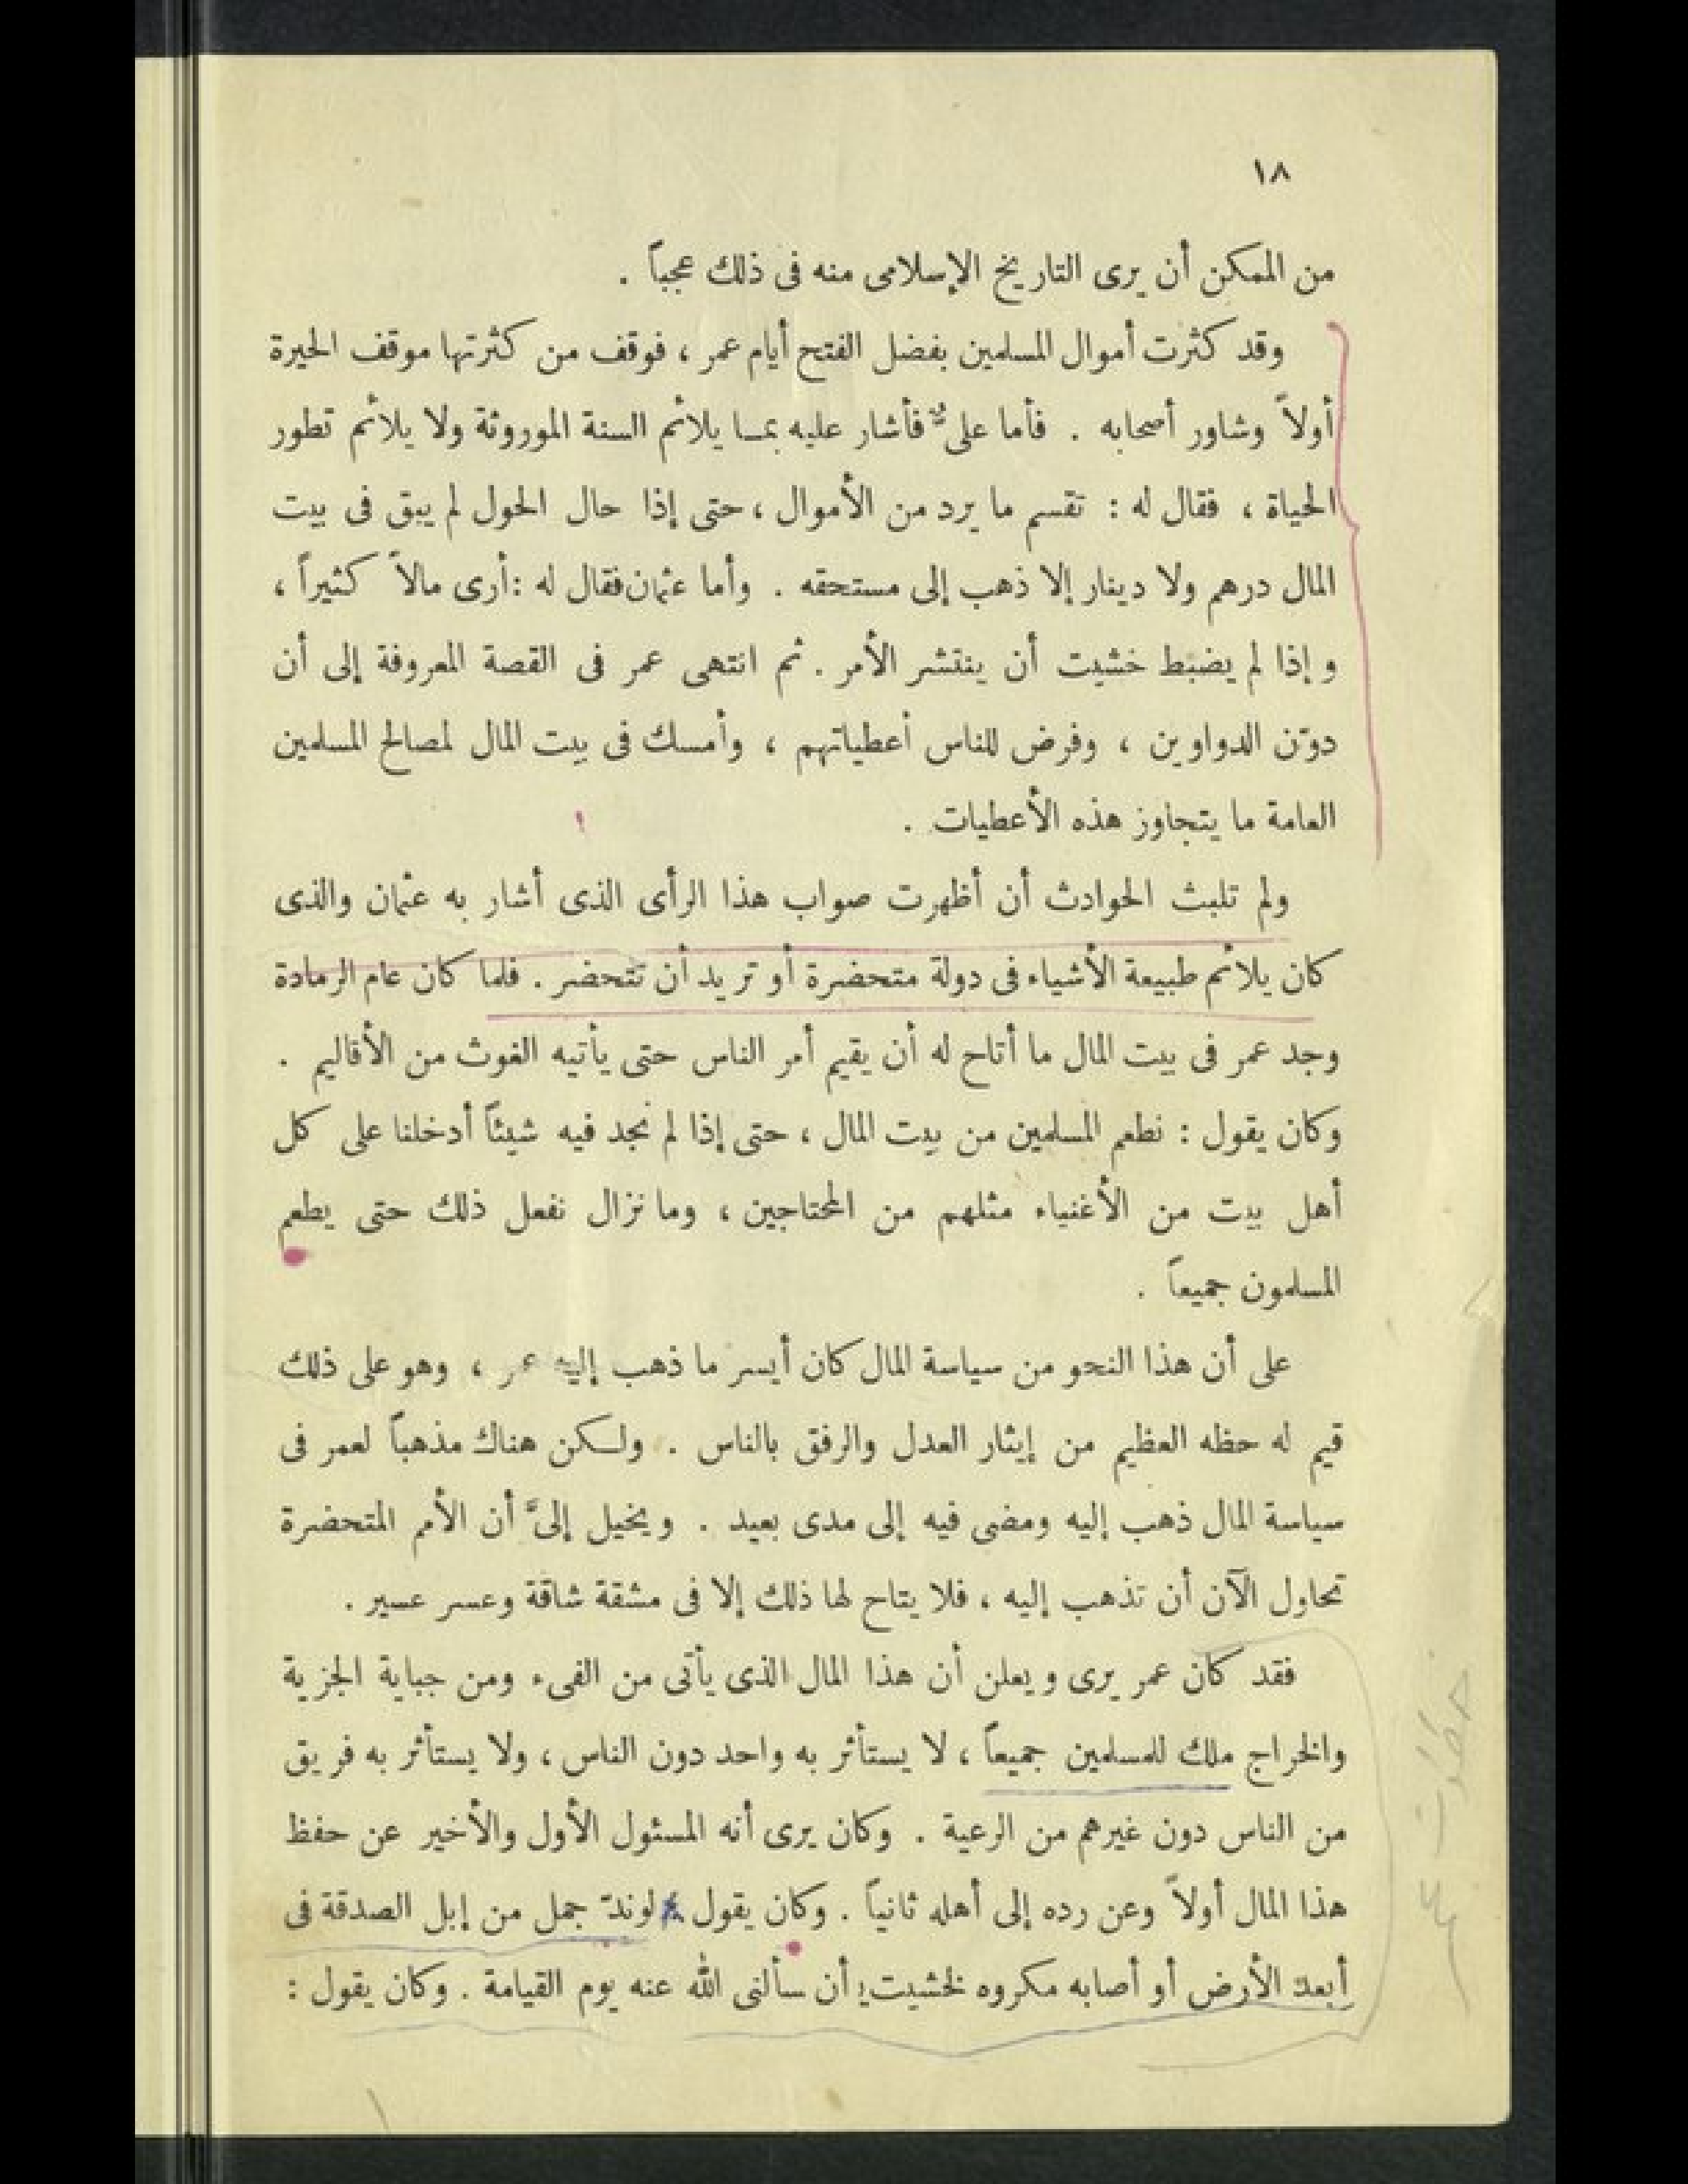 ١٨
من الممكن أن يرى التاريخ الإسلامى منه فى ذلك عجباً .
وقد كثرت أموال المسلمين بفضل الفتح أيام عمر ، فوقف من كثرتها موقف الحيرة
أولاً وشاور أصحابه . فأما علىٌّ فأشار عليه بمـا يلائم السنة الموروثة ولا يلائم تطور
الحياة ، فقال له : تقسم ما يرد من الأموال ، حتى إذا حال الحول لم يبق فى بيت
المال درهم ولا دينار إلا ذهب إلى مستحقه . وأما عثمان فقال له : أرى مالاً كثيراً ،
وإذا لم يضبط خشيت أن ينتشر الأمر . ثم انتهى عمر فى القصة المعروفة إلى أن
دوّن الدواوين ، وفرض للناس أعطياتهم ، وأمسك فى بيت المال لمصالح المسلمين
العامة ما يتجاوز هذه الأعطيات .
ولم تلبث الحوادث أن أظهرت صواب هذا الرأى الذى أشار به عثمان والذى
كان يلائم طبيعة الأشياء فى دولة متحضرة أو تريد أن تتحضر . فلما كان عام الرمادة
وجد عمر فى بيت المال ما أتاح له أن يقيم أمر الناس حتى يأتيه الغوث من الأقاليم .
وكان يقول : نطعم المسلمين من بيت المال ، حتى إذا لم نجد فيه شيئاً أدخلنا على كل
أهل بيت من الأغنياء مثلهم من المحتاجين ، وما نزال نفعل ذلك حتى يطعم
المسلمون جميعاً .
على أن هذا النحو من سياسة المال كان أيسر ما ذهب إليه عمر ، وهو على ذلك
قيم له حظه العظيم من إيثار العدل والرفق بالناس . ولـكن هناك مذهباً لعمر فى
سياسة المال ذهب إليه ومضى فيه إلى مدى بعيد . ويخيل إلىَّ أن الأمم المتحضرة
تحاول الآن أن تذهب إليه ، فلا يتاح لها ذلك إلا فى مشقة شاقة وعسر عسير .
فقد كان عمر يرى ويعلن أن هذا المال الذى يأتى من الفىء ومن جباية الجزية
والخراج ملك للمسلمين جميعاً ، لا يستأثر به واحد دون الناس ، ولا يستأثر به فريق
من الناس دون غيرهم من الرعية . وكان يرى أنه المسئول الأول والأخير عن حفظ
هذا المال أولاً وعن رده إلى أهله ثانياً . وكان يقول لوندّ جمل من إبل الصدقة فى
أبعد الأرض أو أصابه مكروه لخشيت أن سألنى الله عنه يوم القيامة . وكان يقول :